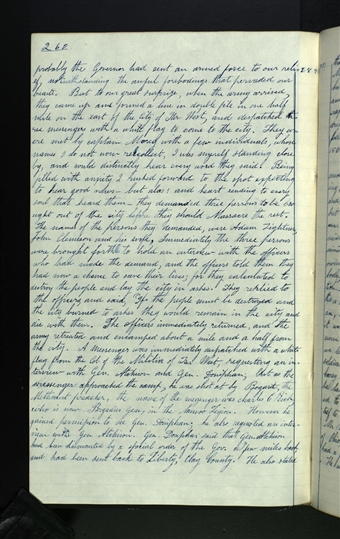 260
probably the Governor had sent an armed force to our relief,
notwithstanding the awful forebodings that pervaded our
hearts. But to our great surprise, when the army arrived,
they came up and formed a line in double file in one half
mile on the east of the city of Far West, and despatched three
messengers with a white flag to come to the city. They were
met by captain Morey with a few individuals, whose
names I do not now recollect, I was myself standing close
by, and could distinctly hear every word they said. Being
filled with anxiety I rushed forward to the spot expecting
to hear good news— but alas! and heart rending to every
soul that heard them— they demanded three persons to be brought
out of the city before they should Massacre the rest.
The names of the persons they demanded, were Adam Lightner,
John Clemison and his wife. Immediately the three persons
were brought forth to hold an interview with the officers
who had made the demand, and the officers told them they
had now a chance to save their lives, for they calculated to
destroy the people and lay the city in ashes. They replied to
the officers and said, If the people must be destroyed and
the city burned to ashes they would remain in the city and
die with them. The officers immediately returned, and the
army retreated and encamped about a mile and a half from
the city. A Messenger was immediately dispatched with a white
flag from the Col of the Militia of Far West, requesting an interview
with Gen. Atchison and Gen. Doniphan; But as the
messenger approached the camp, he was shot at by Bogart, the
Methodist preacher, the name of the messenger was Charles C Rich,
who is now Brigadier Gen, in the Nauvoo Legion. However he
gained permission to see Gen. Doniphan; he also requested an interview
with Gen Atchison. Gen Doniphan said that Gen Atchison
had been dismounted by a special order of the Gov. a few miles back,
and had been sent back to Liberty, Clay County. He also stated